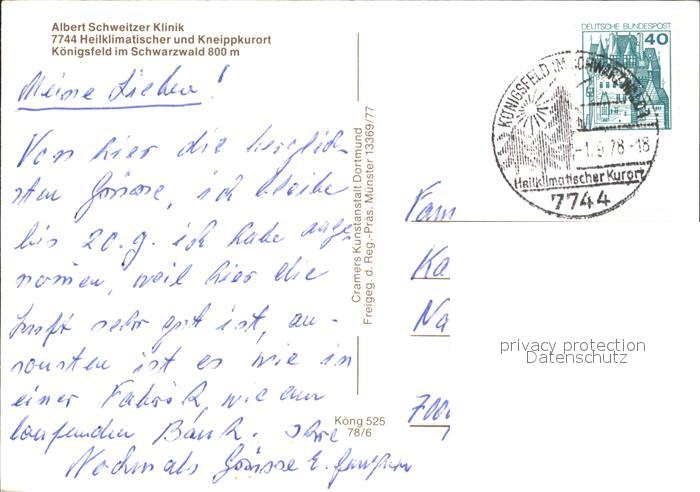 Albert Schweitzer Klinik
7744 Heilklimatischer und Kneippkurort
Königsfeld im Schwarzwald 800 m
Meine Lieben!
Von hier die herzlich-
sten Grüsse, ich bleibe
bis 20.9. ich habe ange
nommen, weil hier die
Luft sehr gut ist, an-
sonsten ist es wie in
einer Fabrik, wie am
laufenden Band. Ihre
Nochmals Grüsse E.
Cramers Kunstanstalt Dortmund
Freigeg. d. Reg.-Präs. Münster 13369/77
Köng 525
78/6
DEUTSCHE BUNDESPOST
40
KÖNIGSFELD IM SCHWARZWALD
-1.9.78-18
Heilklimatischer Kurort
7744
Fam
Ka
Na
700
privacy protection
Datenschutz